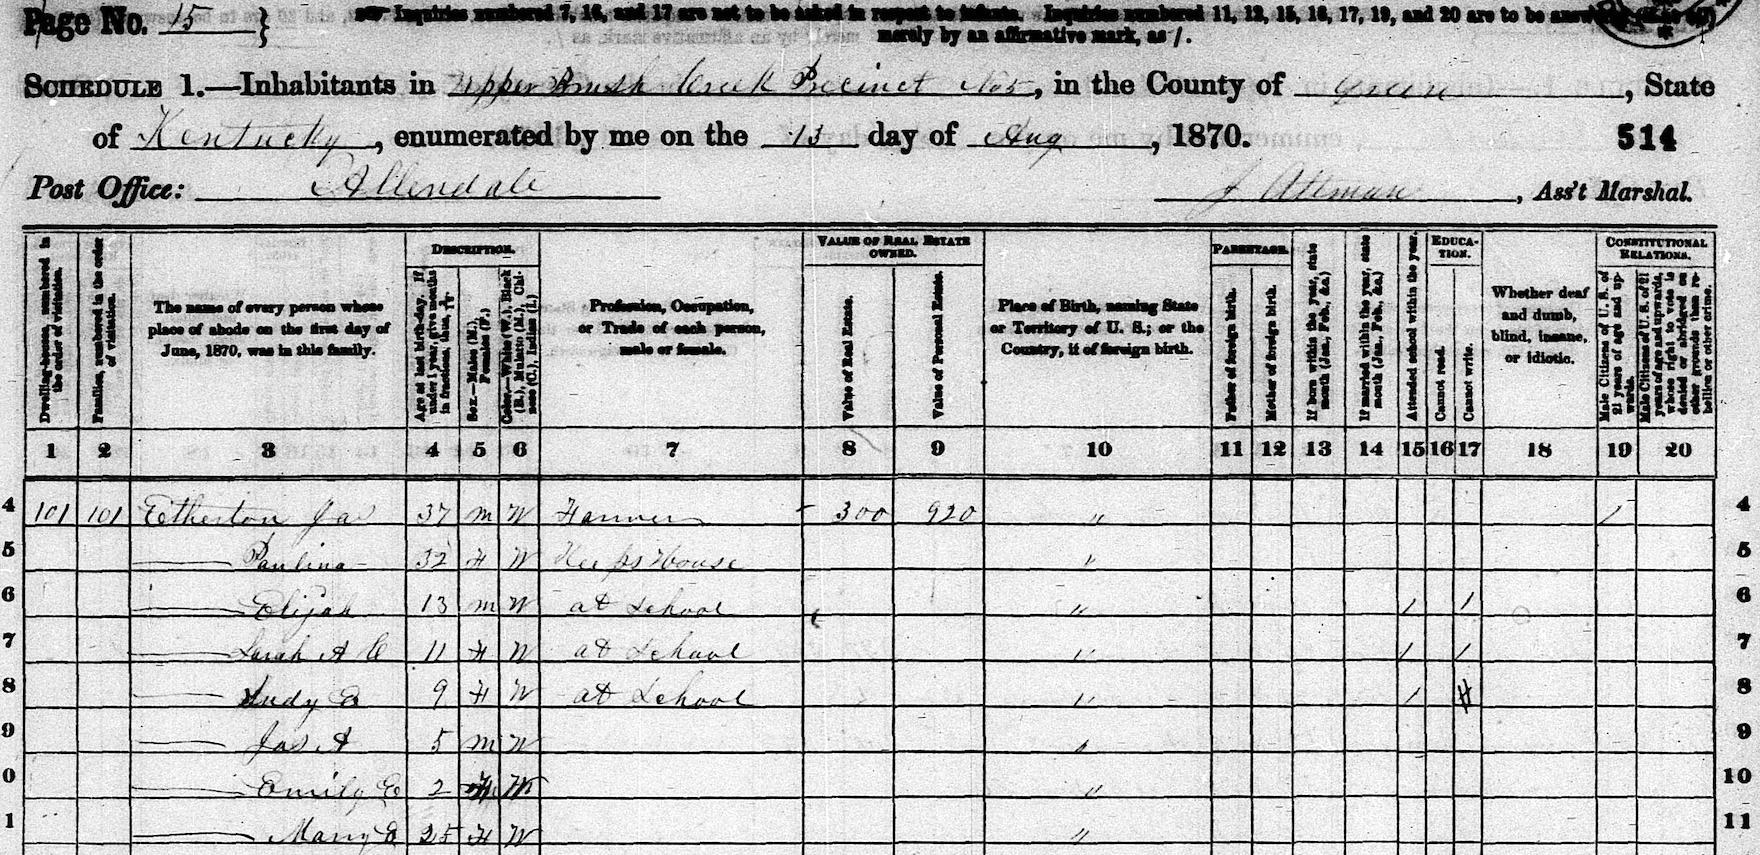 Page No. 15
Inquiries numbered 7, 16, and 17 are not to be asked in respect to infants. Inquiries numbered 11, 12, 15, 16, 17, 19, and 20 are to be answered
merely by an affirmative mark, as /.
SCHEDULE 1.—Inhabitants in Upper Brush Creek Precinct No 5, in the County of Green, State
of Kentucky, enumerated by me on the 13 day of Aug, 1870. 514
Post Office: Allendale J Altman, Ass't Marshal.
Dwelling-houses, numbered in the order of visitation.
Families, numbered in the order of visitation.
The name of every person whose place of abode on the first day of June, 1870, was in this family.
DESCRIPTION.
Age at last birth-day. If under 1 year, give months in fractions, thus, 3/12.
Sex.—Males (M.), Females (F.)
Color.—White (W.), Black (B.), Mulatto (M.), Chinese (C.), Indian (I.)
Profession, Occupation, or Trade of each person, male or female.
VALUE OF REAL ESTATE OWNED.
Value of Real Estate.
Value of Personal Estate.
Place of Birth, naming State or Territory of U. S.; or the Country, if of foreign birth.
PARENTAGE.
Father of foreign birth.
Mother of foreign birth.
If born within the year, state month (Jan., Feb., &c.)
If married within the year, state month (Jan., Feb., &c.)
Attended school within the year.
EDUCATION.
Cannot read.
Cannot write.
Whether deaf and dumb, blind, insane, or idiotic.
CONSTITUTIONAL RELATIONS.
Male Citizens of U. S. of 21 years of age and upwards.
Male Citizens of U. S. of 21 years of age and upwards, whose right to vote is denied or abridged on other grounds than rebellion or other crime.
1 2 3 4 5 6 7 8 9 10 11 12 13 14 15 16 17 18 19 20
4 101 101 Etherton Jas 37 M W Farmer 300 920 " / 4
5 — Paulina 32 F W Keeps House " 5
6 — Elijah 13 M W at School " / / 6
7 — Sarah A C 11 F W at School " / / 7
8 — Judy E 9 F W at School " / 8
9 — Jas A 5 M W " 9
0 — Emily E 2 F W " 10
1 — Mary E 25 F W " 11